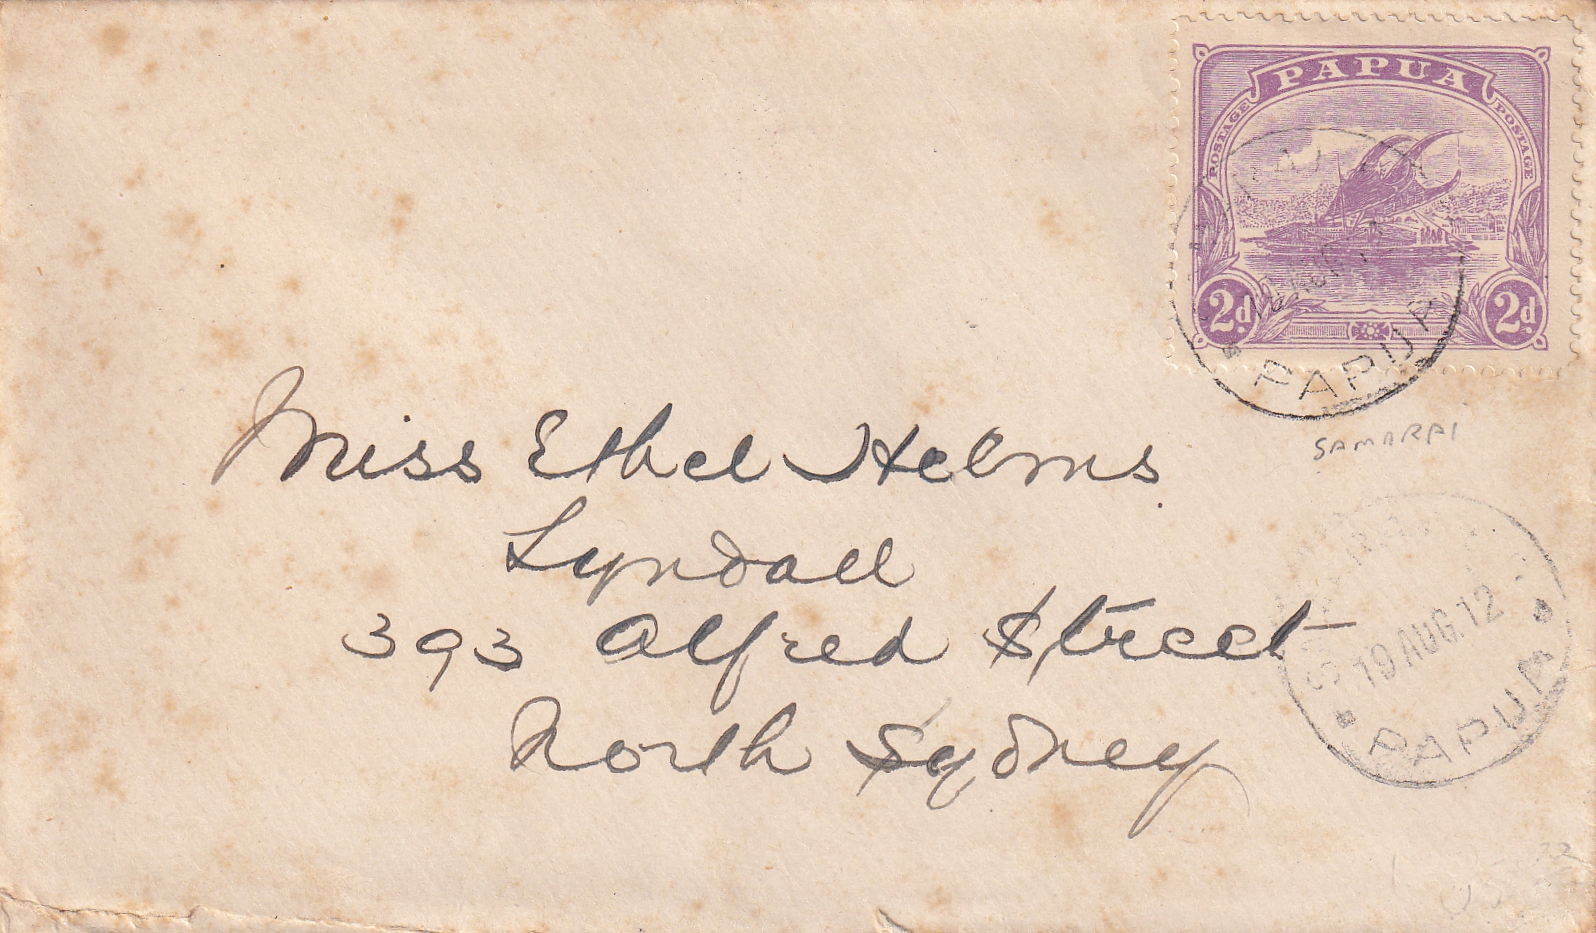 PAPUA
POSTAGE POSTAGE
2d. 2d.
PAPUA
SAMARAI
Miss Ethel Helms
Lyndall
393 Alfred Street
North Sydney
19 AUG.12
PAPUA